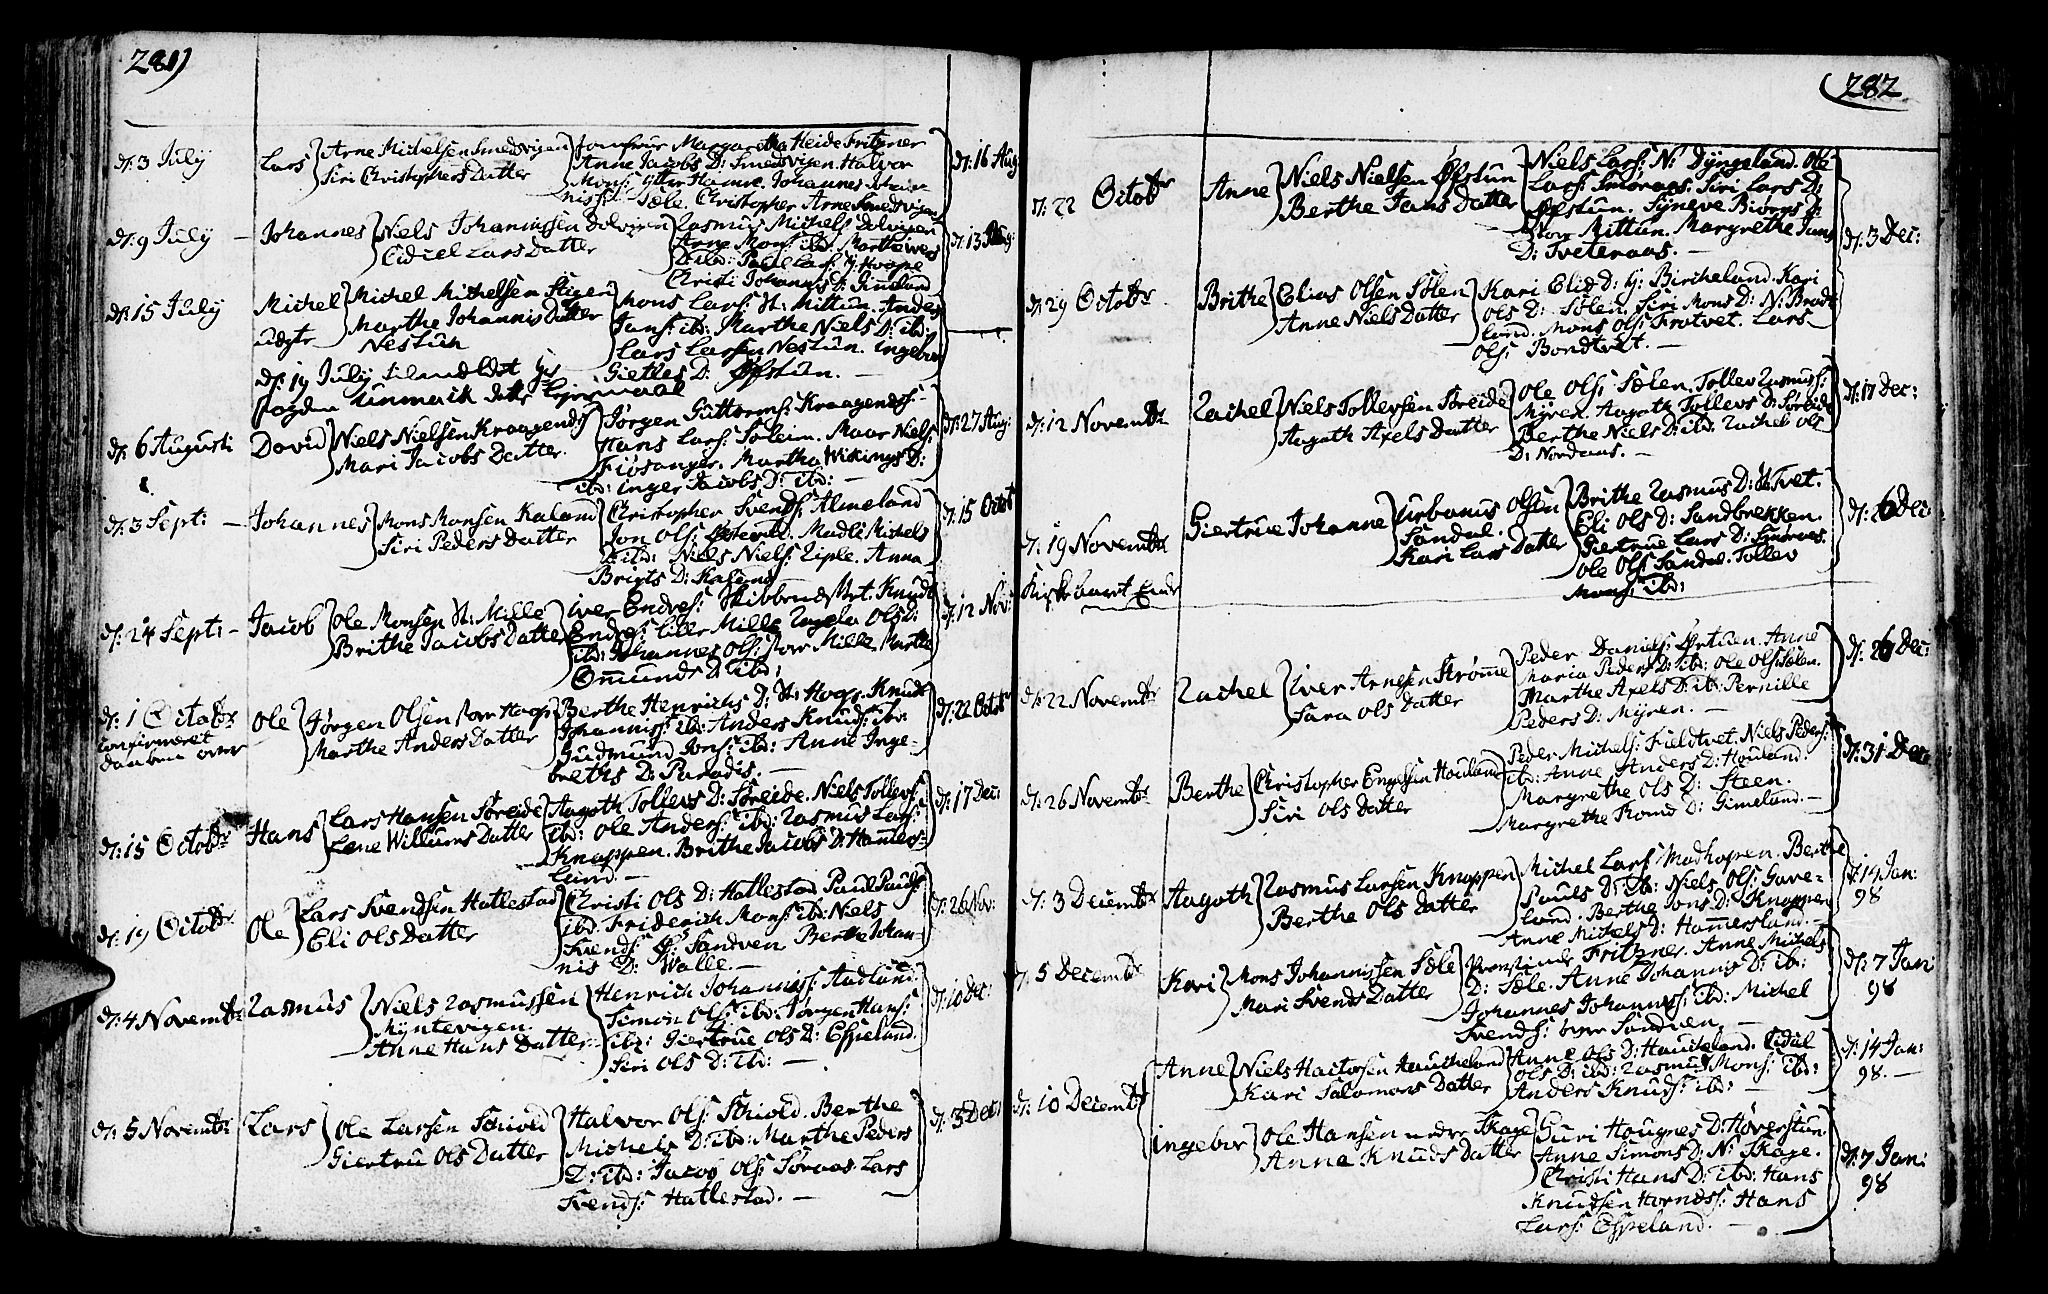 281)
d: 3 July
Lars
Arne Michelsen Smedsvigen
Siri Christophers Datter
Jomfrue Margaretha Heide Fritzner
Anne Jacobs D: Smedsvigen Halvor
Mons: Ytter Hanne. Johannes Johan
niss: Sæle. Christopher Arnes: Smedsvigen
d: 16 Aug
d: 9 July –
Johannes
Niels Johannissen Dolvigen
Eidiel Lars Datter
Rasmus Michels: Dolvigen
Arne Mons: ibd: Marthe Ivers
D: ibd:
Christi Johannis D: Rimeland
d: 13 Aug:
d: 15 July
Michel
uægte
Michel Michelsen Stigen
Marthe Johannis Datter
Nestun
Mons Lars: N: Mittun. Anders
Jans: ibd: Marthe Niels D: ibd:
Lars Larsen Nestun. Ingebor
Giertles D: Øfstun. –
d: 19 July tilmældet Hr
fogden Unmack dette Leiermaal
d: 6 Augusti
David
Niels Nielsen Kraagenes
Mari Jacobs Datter.
Jørgen Guttorms: Kraagenes:
Hans Lars: Søleim. Maar Niels:
Fiøsanger. Martha Wikings D:
ibd: Inger Jacobs D: ibd: –
d: 27 Aug:
d: 3 Sept: –
Johannes
Mons Monsen Kaland
Siri Peders Datter
Christopher Svends: Almeland
Jon Ols: Madle Michels
D: ibd: Niels Niels: Riple. Anna
Brigts D: Kaland
d: 15 Octob
d: 24 Sept: –
Jacob
Ole Monsen N: Mille
Brithe Jacobs Datter
Iver Endres: Skibbenes Knud
Endres: Lille Mille Ragela Ols D:
ibd: Johannes Ols: Mille Marthe
Omunds D: ibd:
d: 12 Nov:
d: 1 Octobr
confirmeret
daaben over
Ole
Jørgen Olsen Hope
Marthe Anders Datter
Berthe Henrichs D: N: Hope. Knud
Johannis: ibd: Anders Knuds: ibd:
Gudmund Jons: ibd: Anne Inge-
breths D: Paradis. –
d: 22 Octob
d: 15 Octobr
Hans
Lars Hansen Søreide
Lene Willums Datter
Aagoth Tollevs D: Søreide. Niels Tollevs:
ibd: Ole Anders: ibd: Rasmus Lars:
Knappen. Brithe Jacobs D: Hamers-
land. –
d: 17 Dec:
d: 19 Octobr
Ole
Lars Svendsen Hatlestad
Eli Ols Datter
Christi Ols D: Hatlestad Paul Pauls:
ibd: Friderich Mons: ibd: Niels
Svends: Ø: Sandven Berthe Johan-
nis D: Walle. –
d: 26 Nov:
d: 4 Novembr
Rasmus
Niels Rasmussen
Myntevigen
Anne Hans Datter
Henrich Johannis: Aadland
Simon Ols: ibd: Jørgen Hans:
ibd: Giertrue Ols D: Espeland.
Siri Ols D: ibd: –
d: 10 Dec:
d: 5 Novembr
Lars
Ole Larsen Schiold
Giertru Ols Datter
Halvor Ols: Schiold. Berthe
Michels D: ibd: Marthe Peders
D: ibd: Jacob Ols: Søraas Lars
Svends: Hatlestad. –
d: 3 Dec:
(282
d: 22 Octobr
Anne
Niels Nielsen Øfstun
Berthe Jans Datter
Niels Lars: N: Dyngeland. Ole
Lars: Smøraas. Siri Lars D:
Øfstun. Syneve Biørns D:
Mittun. Margrethe Jans
D: Tveteraas. –
d: 3 Dec:
d: 29 Octobr
Brithe
Elias Olsen Sølen
Anne Niels Datter
Kari Elis D: Birkeland. Kari
Ols D: Sølen. Siri Mons D: N: Brat
land. Mons Ols: Trotvet. Lars
Ols: Bondtvet. –
d: 12 Novembr
Rachel
Niels Tollevsen Søreide
Aagoth Axels Datter
Ole Ols: Sælen. Tollev Rasmuss:
Myren. Aagoth Tollevs D: Søreide
Berthe Niels D: ibd: Rachel Ols
D: Nordaas. –
d: 17 Dec:
d: 19 Novembr
Giertrue Johanne
Urbanus Olsen
Sandal.
Kari Lars Datter
Brithe Rasmus D: N: Tvet.
Eli Ols D: Sandbrekken.
Giertrue Lars D: Smøraas.
Ole Ols: Sandal. Tollev
Mons: ibd:
d: 26 Dec
Kirke Aaret Ende
d: 22 Novembr
Rachel
Iver Arnesen Strømme
Sara Ols Datter
Peder Daniels: Ørtuen. Anne
Maria Peders D: ibd: Ole Ols: Sølen.
Marthe Axels D: ibd: Pernille
Peders D: Myren. –
d: 26 Dec:
d: 26 Novembr
Berthe
Christopher Engelsen Houland
Siri Ols Datter
Peder Michels: Fieldtvet. Niels Peders:
ibd: Anne Anders D: Houland.
Margrethe Ols D: Steen.
Margrethe D: Gimeland. –
d: 31 Dec
d: 3 Decembr
Aagoth
Rasmus Larsen Knappen
Berthe Ols Datter
Michel Lars: Mathopen. Berthe
Pouls D: ibd: Niels Ols: Gave-
land. Berthe Jons D: Knappen
Anne Michels D: Hamersland. –
d: 14 Jan:
98
d: 5 Decembr
Kari
Mons Johannissen Sæle
Mari Svends Datter
Fritzner. Anne Michels
D: Sæle. Anne Johannis D: ibd:
Johannes Johannis: ibd: Michel
Svends: Sandven. –
d: 7 Jan:
98
d: 10 Decembr
Anne
Niels Haldorsen Haucheland
Kari Salomons Datter
Anne Ols D: Haucheland. Eidiel
Ols D: ibd: Rasmus Mons: ibd:
Anders Knuds: ibd: –
d: 14 Jan:
98. –
Ingebor
Ole Hansen nedre Skage
Anna Knuds Datter
Guri Hougnes D: Høverstun
Anne Simons D: N: Skage.
Christi Hans D: ibd: Hans
Knudsen Hornes: Hans
Lars: Espeland. –
d: 7 Jan:
98